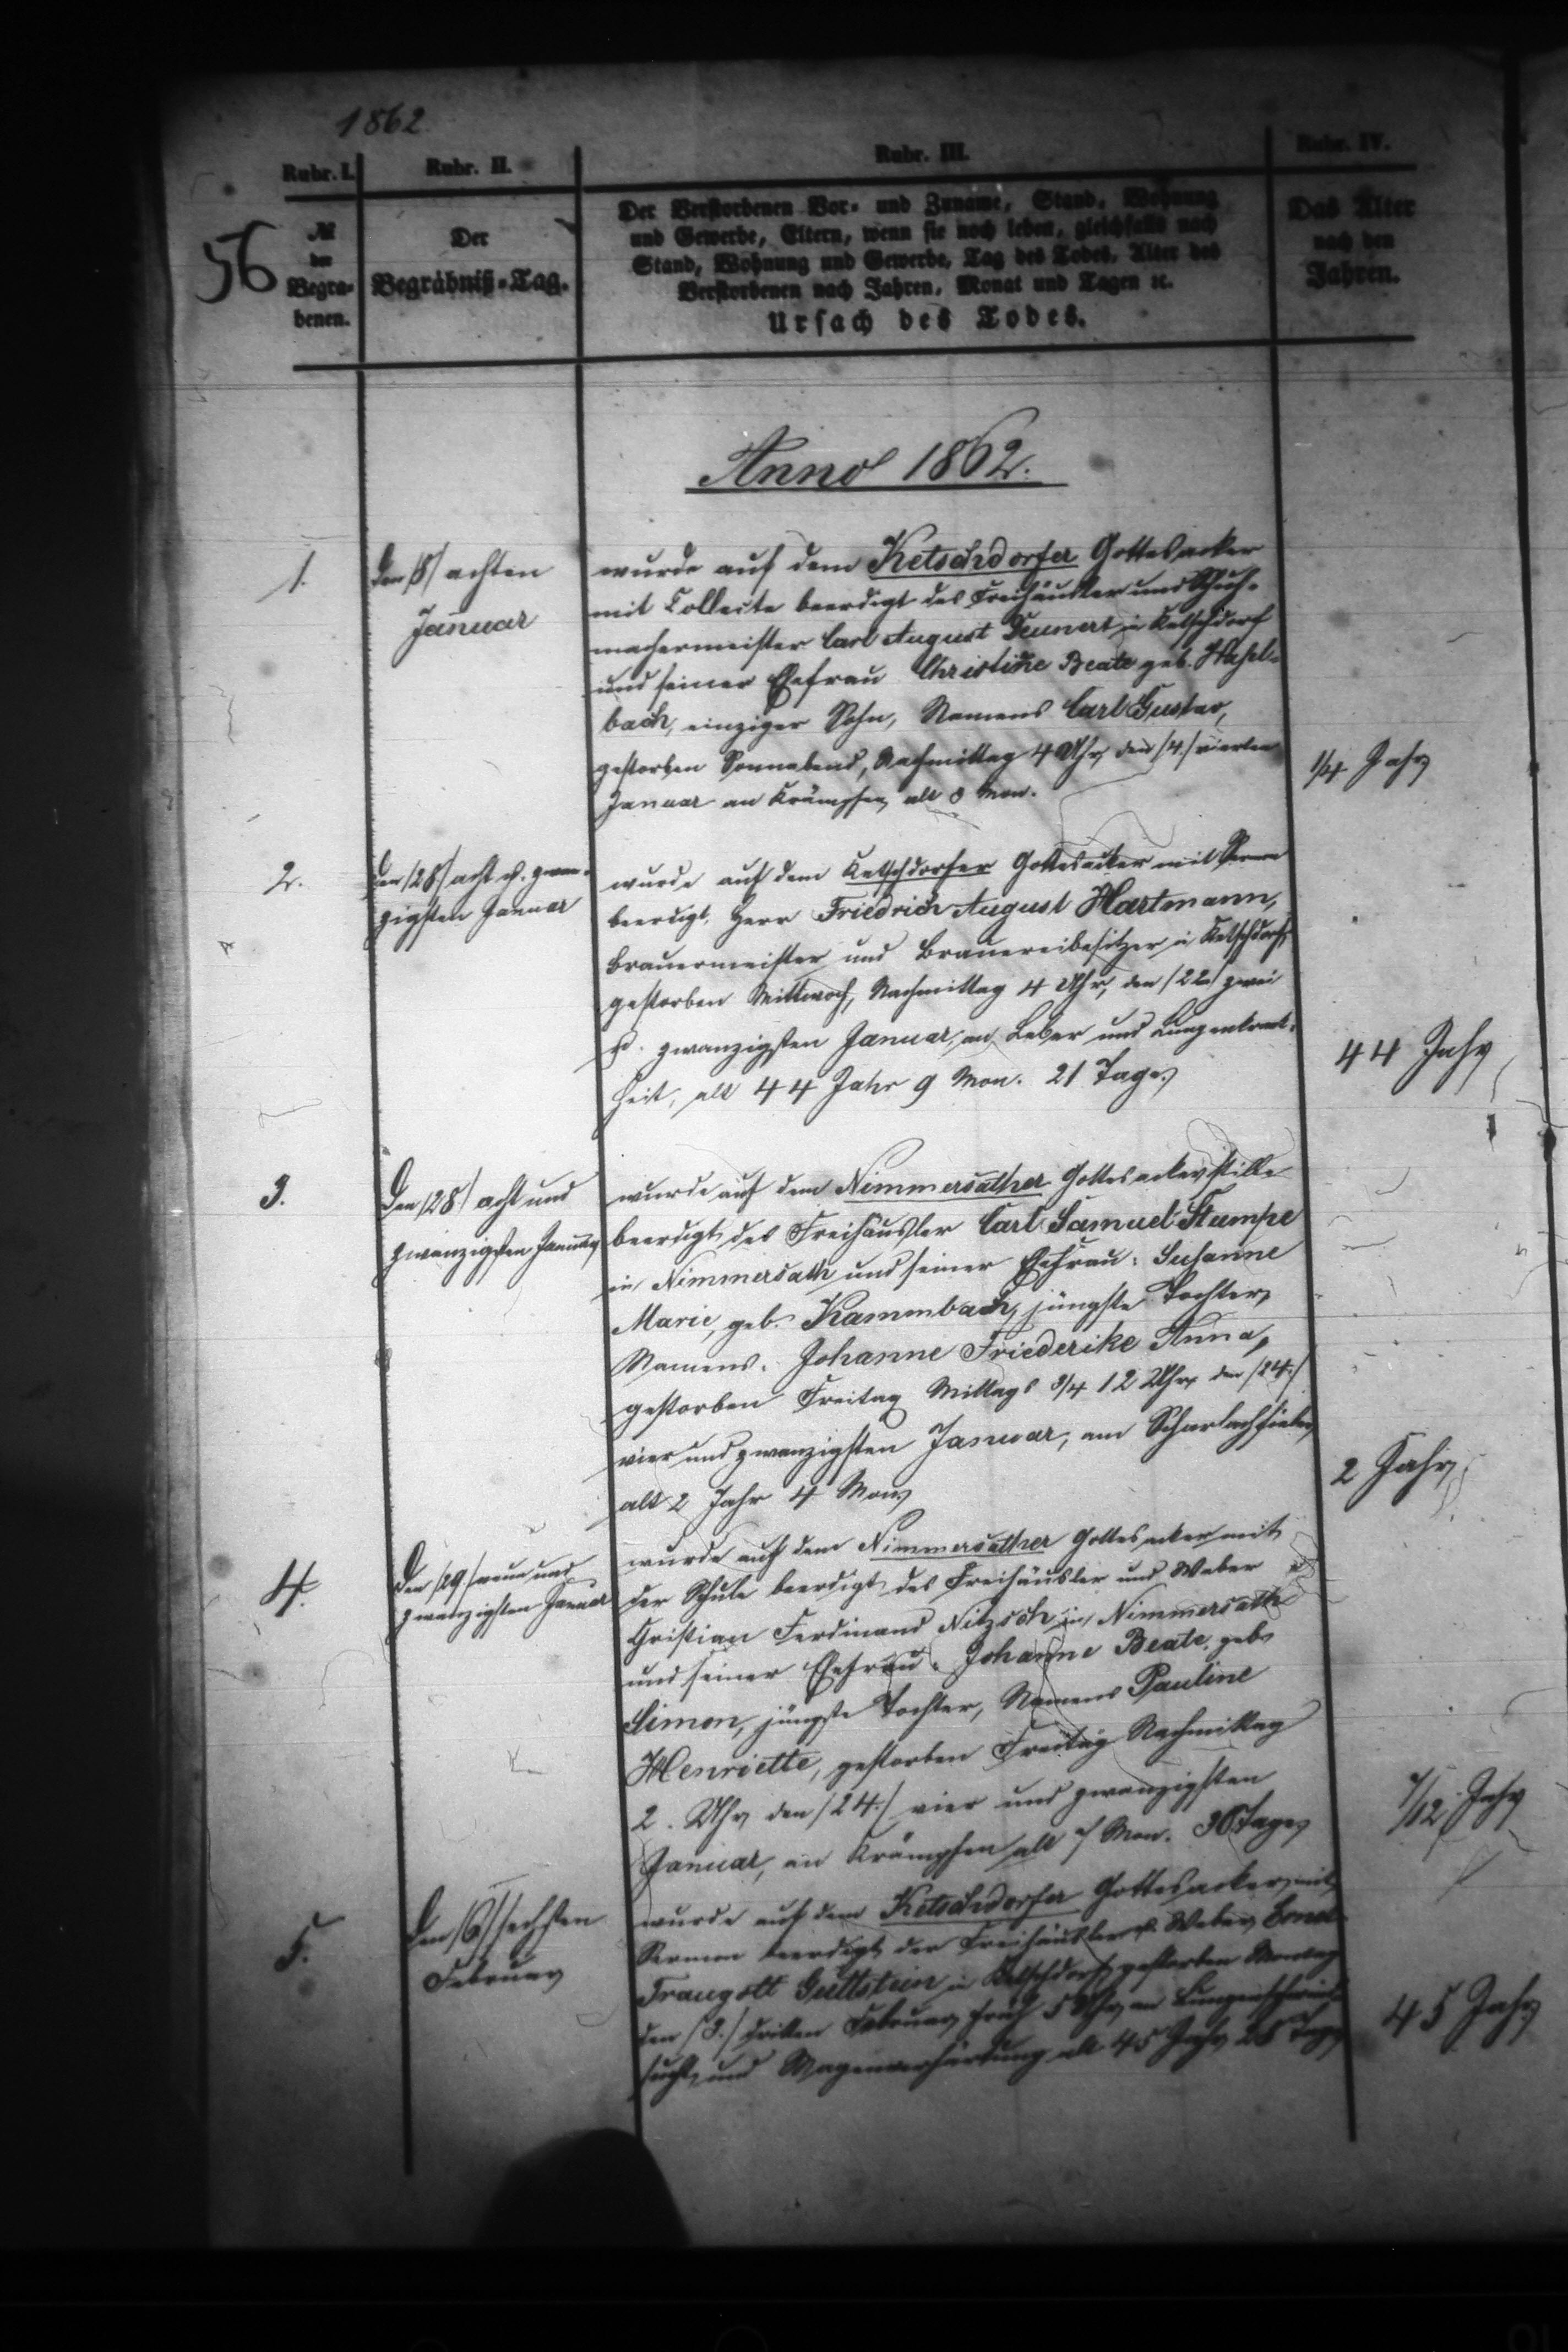 1862.
Rubr. I.
Rubr. II.
Rubr. III.
Rubr. IV.
56
№
der
Begra-
benen.
Der
Begräbniß-Tag.
Der Verstorbenen Vor- und Zuname, Stand, Wohnung
und Gewerbe, Eltern, wenn sie noch leben, gleichfalls nach
Stand, Wohnung und Gewerbe, Tag des Todes, Alter des
Verstorbenen nach Jahren, Monat und Tagen ꝛc.
Ursach des Todes.
Das Alter
nach den
Jahren.
Anno 1862.
1.
Den /8/ achten
Januar
wurde auf dem Ketschdorfer Gottesacker
mit Collecte beerdigt des Freihäusler und Schuh-
machermeister Carl August in Ketschdorf
und seiner Ehefrau Christine Beate geb. Hasel-
bach, einziger Sohn, Namens Carl Gustav,
gestorben Sonnabend, Nachmittag 4 Uhr, den /4./ vierten
Januar an Krämpfen, alt Mon.
1/4 Jahr
2.
Den /28/ acht u. zwan-
zigsten Januar
wurde auf dem Ketschdorfer Gottesacker mit Sermon
beerdigt, Herr Friedrich August Hartmann,
Brauermeister und Brauereibesitzer in Ketschdorf,
gestorben Mittwoch, Nachmittag 4 Uhr, den /22/ zwei
u. zwanzigsten Januar, an Leber und Lungenkrank-
heit, alt 44 Jahr 9 Mon. 21 Tage.
44 Jahr
3.
Den /28./ acht und
zwanzigsten Januar
wurde auf dem Nimmersather Gottesacker stille
beerdigt des Freihäusler Carl Samuel Stumpe
in Nimmersath und seiner Ehefrau: Susanne
Marie, geb. Kammbach, jüngste Tochter,
Namens: Johanne Friederike Anna,
gestorben Freitag Mittags 3/4 12 Uhr, den /24./
vier und zwanzigsten Januar, am Scharlachfieber,
alt 2 Jahr 4 Mon.
2 Jahr
4.
Den /29/ neun und
zwanzigsten Januar
wurde auf dem Nimmersather Gottesacker mit
der Schule beerdigt des Freihäusler und Weber
Christian Ferdinand Nitzsch in Nimmersath
und seiner Ehefrau: Johanne Beate, geb.
Simon, jüngste Tochter, Namens Pauline
Henriette, gestorben Freitag Nachmittag
2. Uhr den /24./ vier und zwanzigsten
Januar, an Krämpfen alt 7 Mon. Tage,
7/12 Jahr
5.
Den /6/ sechsten
Februar
wurde auf dem Ketschdorfer Gottesacker, mit
Sermon beerdigt der Freihäusler u. Weber, Ernst
Traugott Guttstein in Ketschdorf, gestorben Montag
den /3./ dritten Februar, früh 5 Uhr, an Lungenschwind-
sucht und Magenverhärtung alt 45 Jahr Tage
45 Jahr